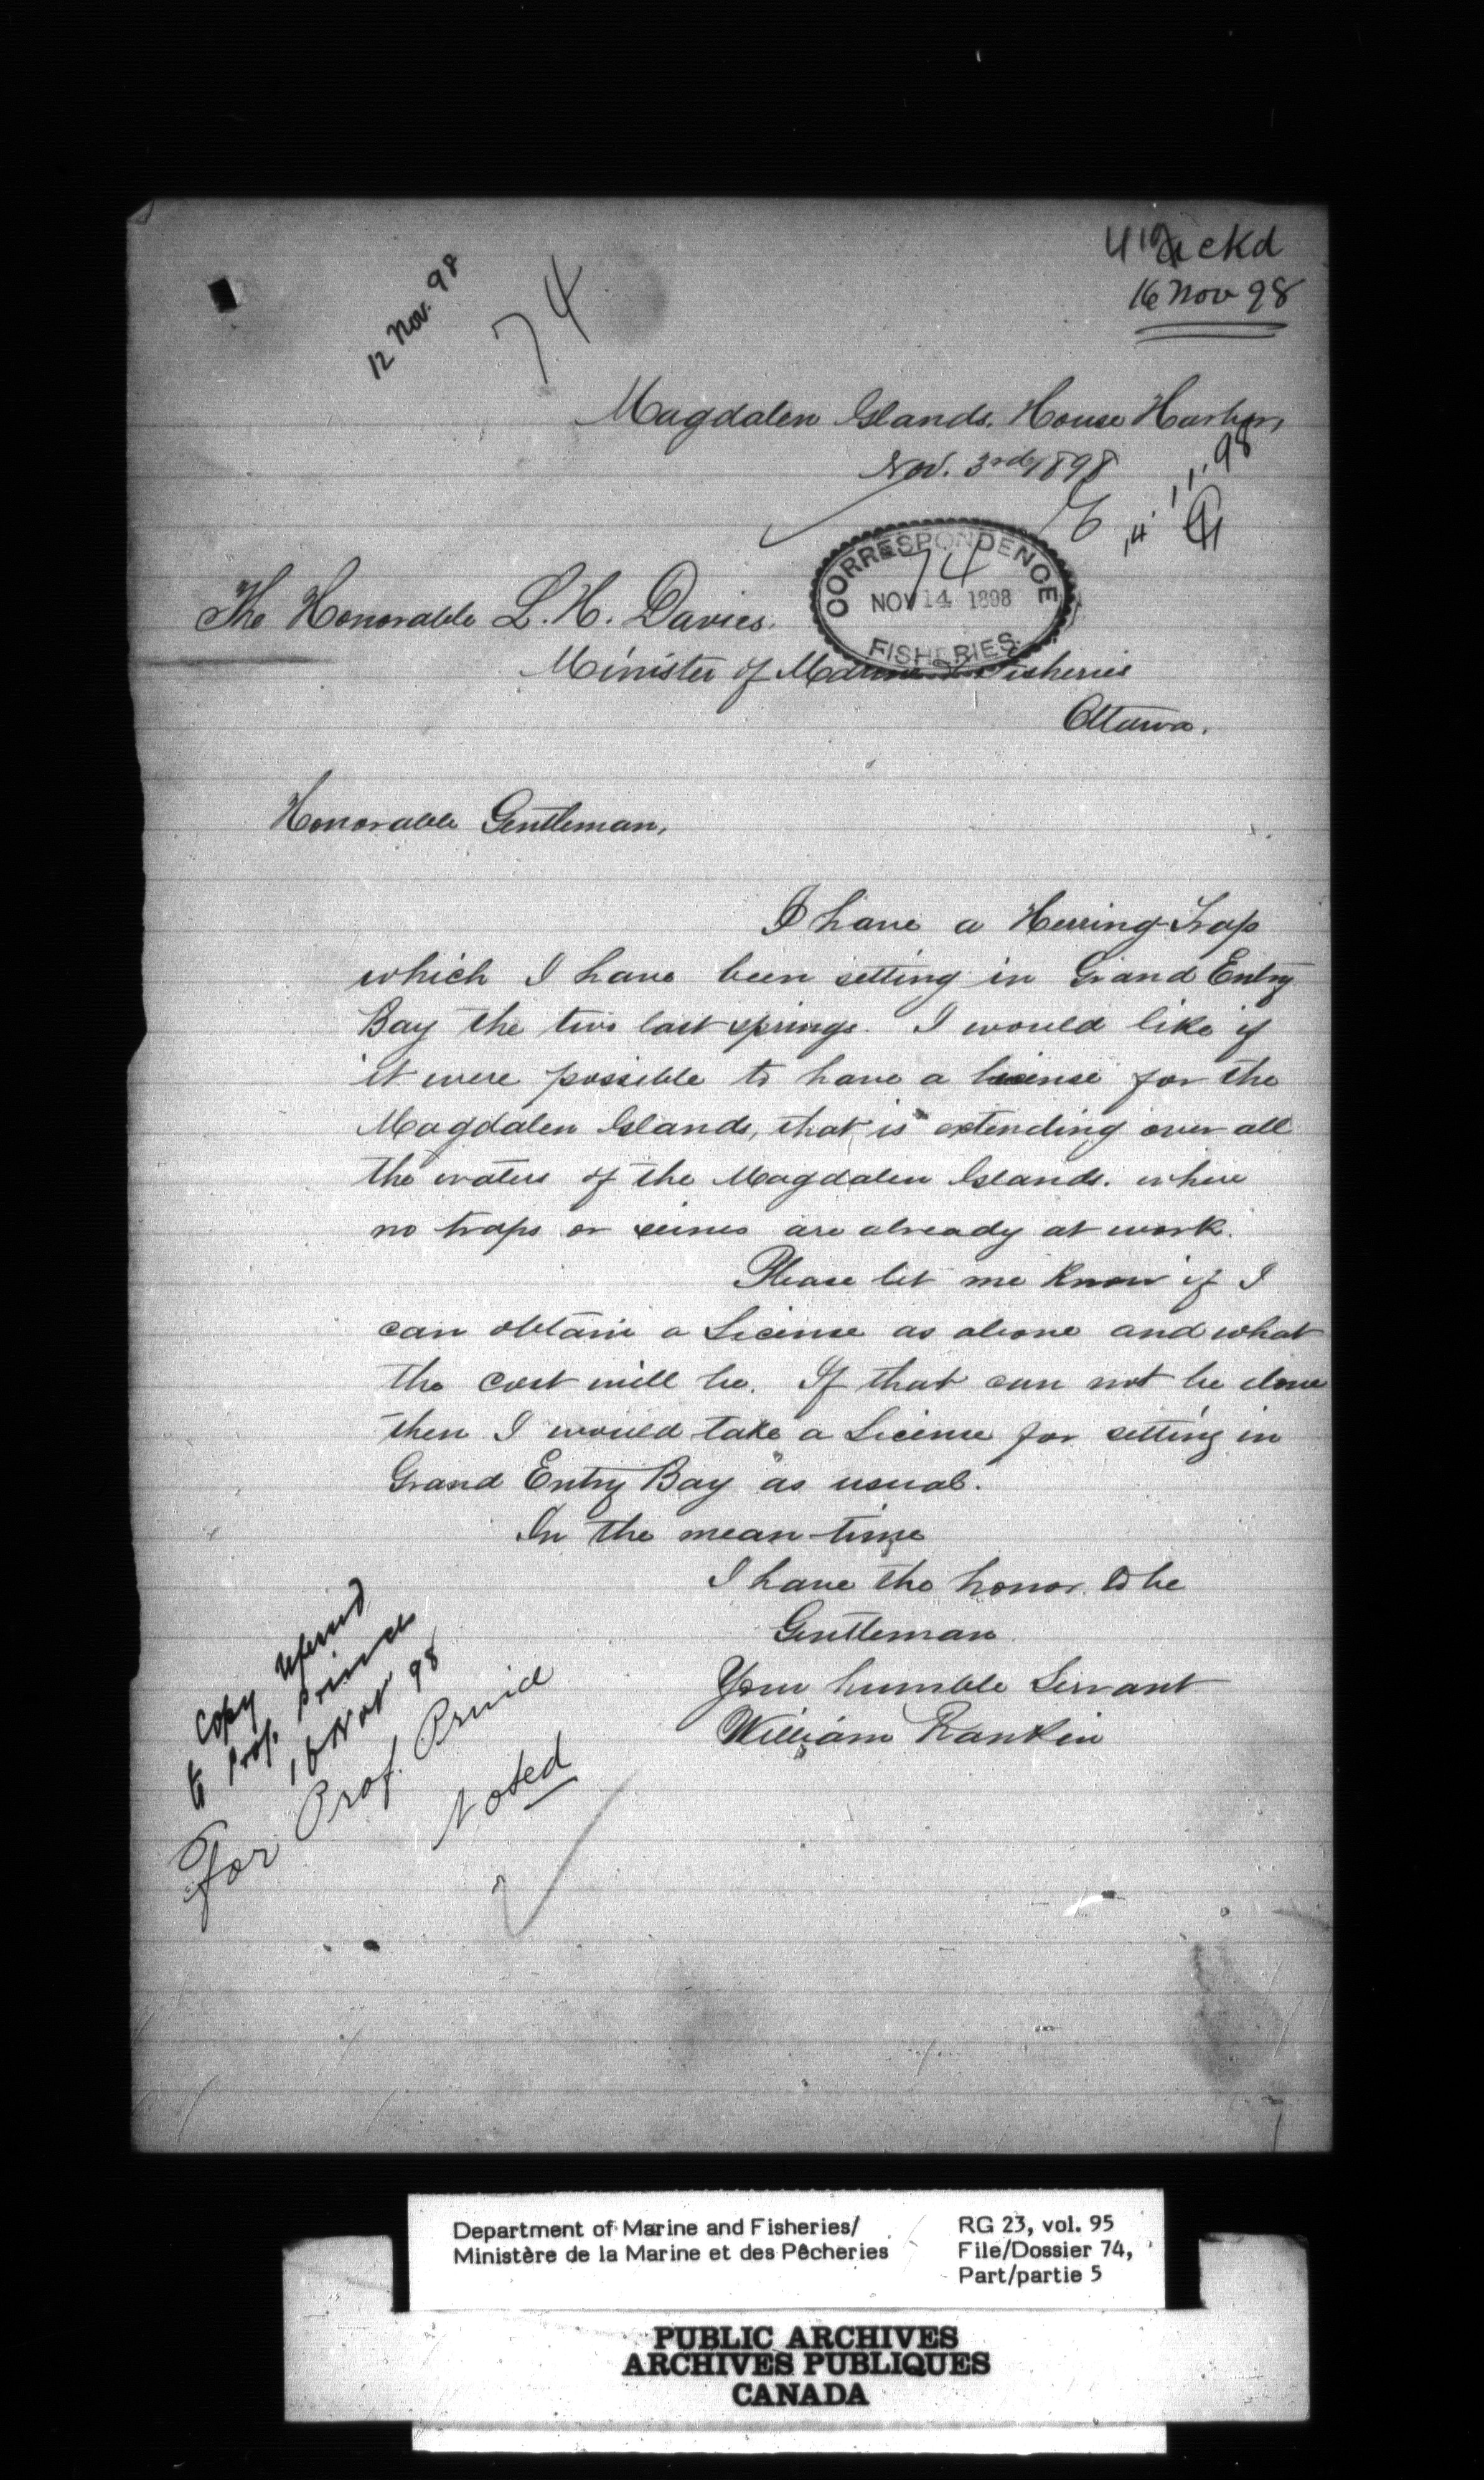 ackd
16 Nov 98
12 Nov. 98
74
Magdalen Islands, House Harbor,
Nov. 3rd 1898
14.11.98
CORRESPONDENCE
74
NOV 14 1898
FISHERIES.
The Honorable L. H. Davies.
Minister of Marine & Fisheries
Ottawa.
Honorable Gentleman,
I have a Herring-Trap
which I have been setting in Grand Entry
Bay the two last springs. I would like if
it were possible to have a license for the
Magdalen Islands, that is extending over all
the waters of the Magdalen Islands. where
no traps or seines are already at work.
Please let me know if I
can obtain a License as above and what
the cost will be. If that can not be done
then I would take a License for setting in
Grand Entry Bay as usual.
In the mean-time
I have the honor to be
Gentleman
Your humble Servant
William Rankin
Copy referred
to Prof. Prince
16 Nov 98
For Prof. Prince
Noted
Department of Marine and Fisheries/
Ministère de la Marine et des Pêcheries
RG 23, vol. 95
File/Dossier 74,
Part/partie 5
PUBLIC ARCHIVES
ARCHIVES PUBLIQUES
CANADA